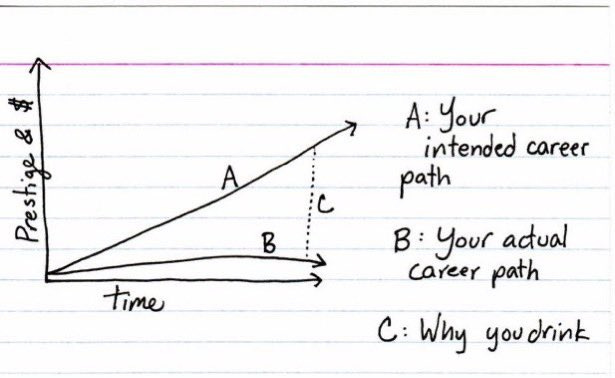 Prestige & $
time
A
B
C
A: Your
intended career
path
B: Your actual
career path
C: Why you drink